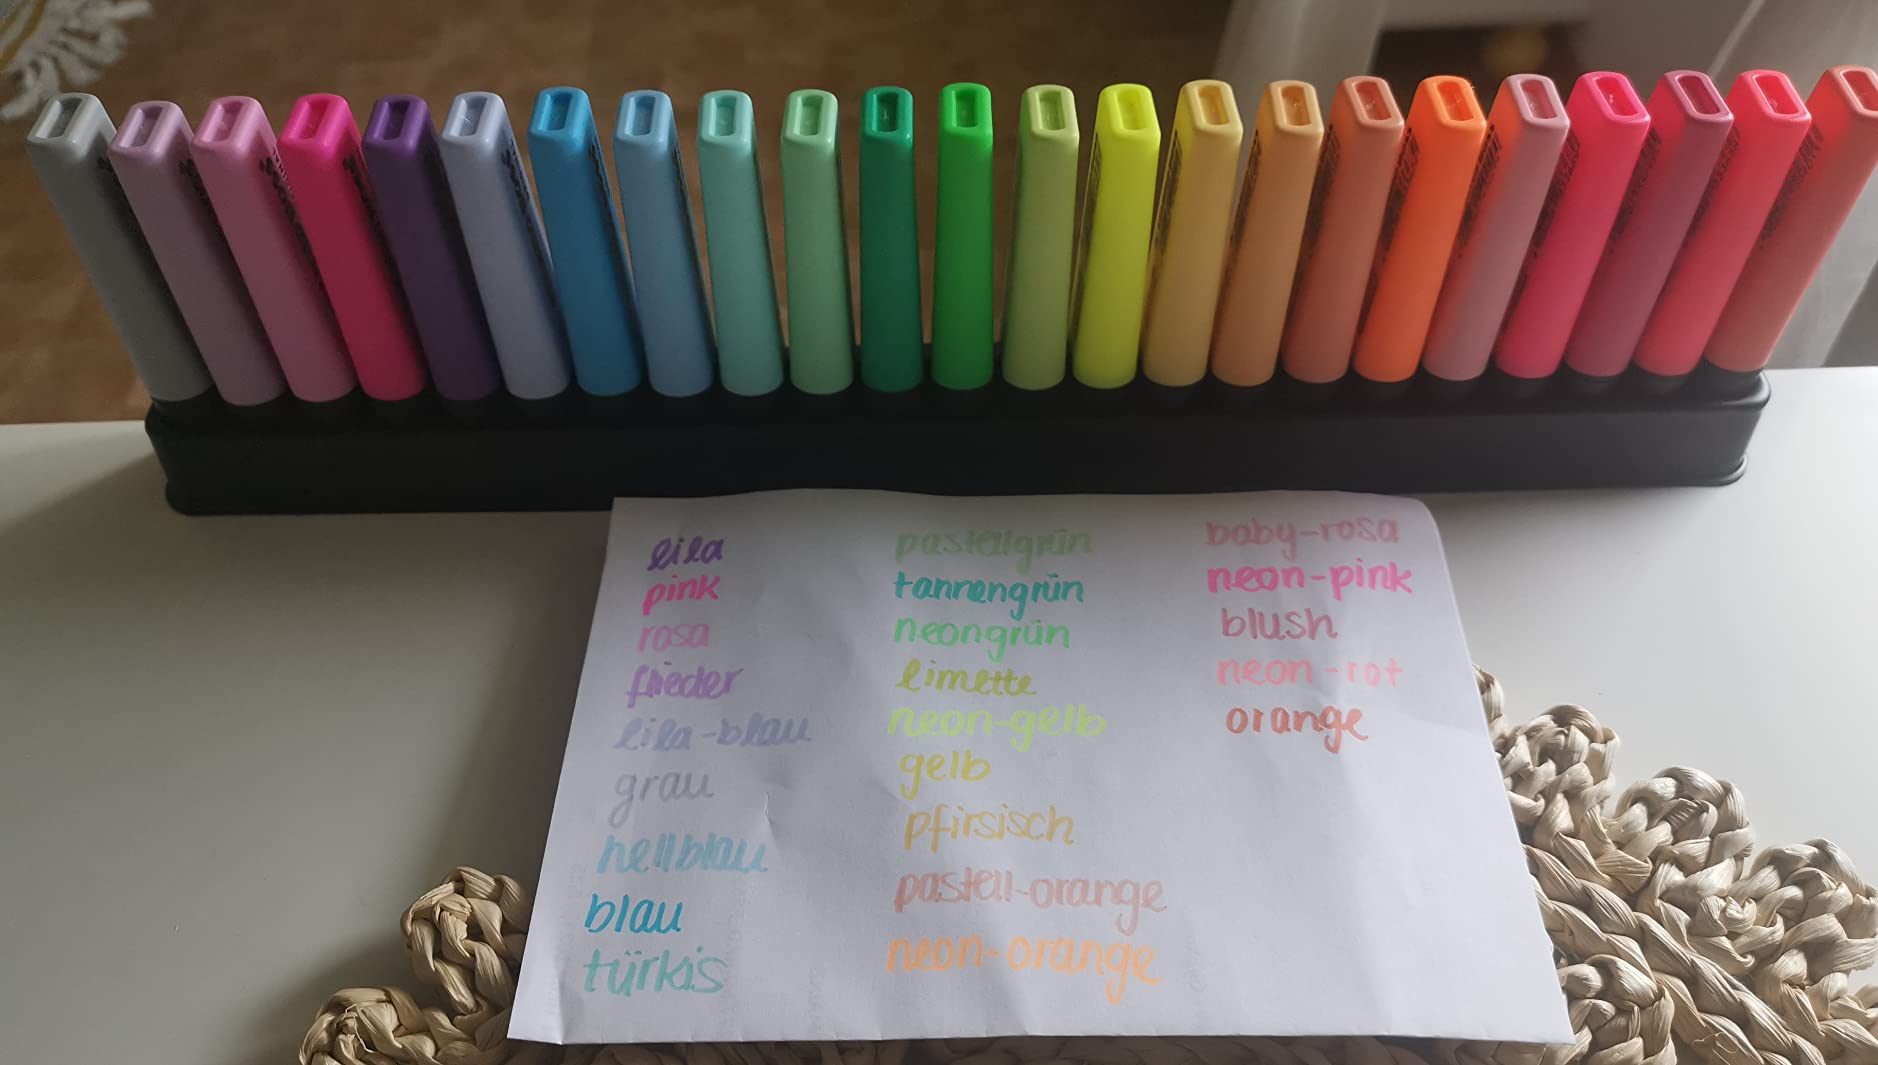 lila
pink
rosa
flieder
lila-blau
grau
hellblau
blau
türkis
pastellgrün
tannengrün
neongrün
limette
neon-gelb
gelb
pfirsisch
pastell-orange
neon-orange
baby-rosa
neon-pink
blush
neon-rot
orange